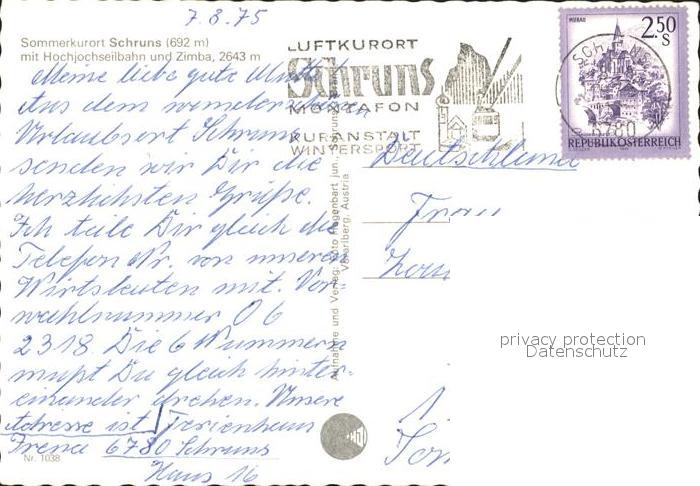 7.8.75
Sommerkurort Schruns (692 m)
mit Hochjochseilbahn und Zimba, 2643 m
Meine liebe gute
Aus dem
Urlaubsort Schruns
senden wir Dir die
herzlichsten Grüße.
Ich teile Dir gleich die
Telefon Nr. von unseren
Wirtsleuten mit. Vor
wahlnummer 06
2318. Die 6 Nummern
mußt Du gleich hinter-
einander drehen. Unsere
Adresse ist Ferienhaus
Irene 6780 Schruns
Haus 16
Nr. 1038
LUFTKURORT
Schruns
MONTAFON
KURANSTALT
WINTERSPORT
MURAU
2.50
S
6780
REPUBLIK ÖSTERREICH
Aufnahme und Verlag: Otto Hagenbart jun., Schruns
Vorarlberg, Austria
Deutschland
privacy protection
Datenschutz